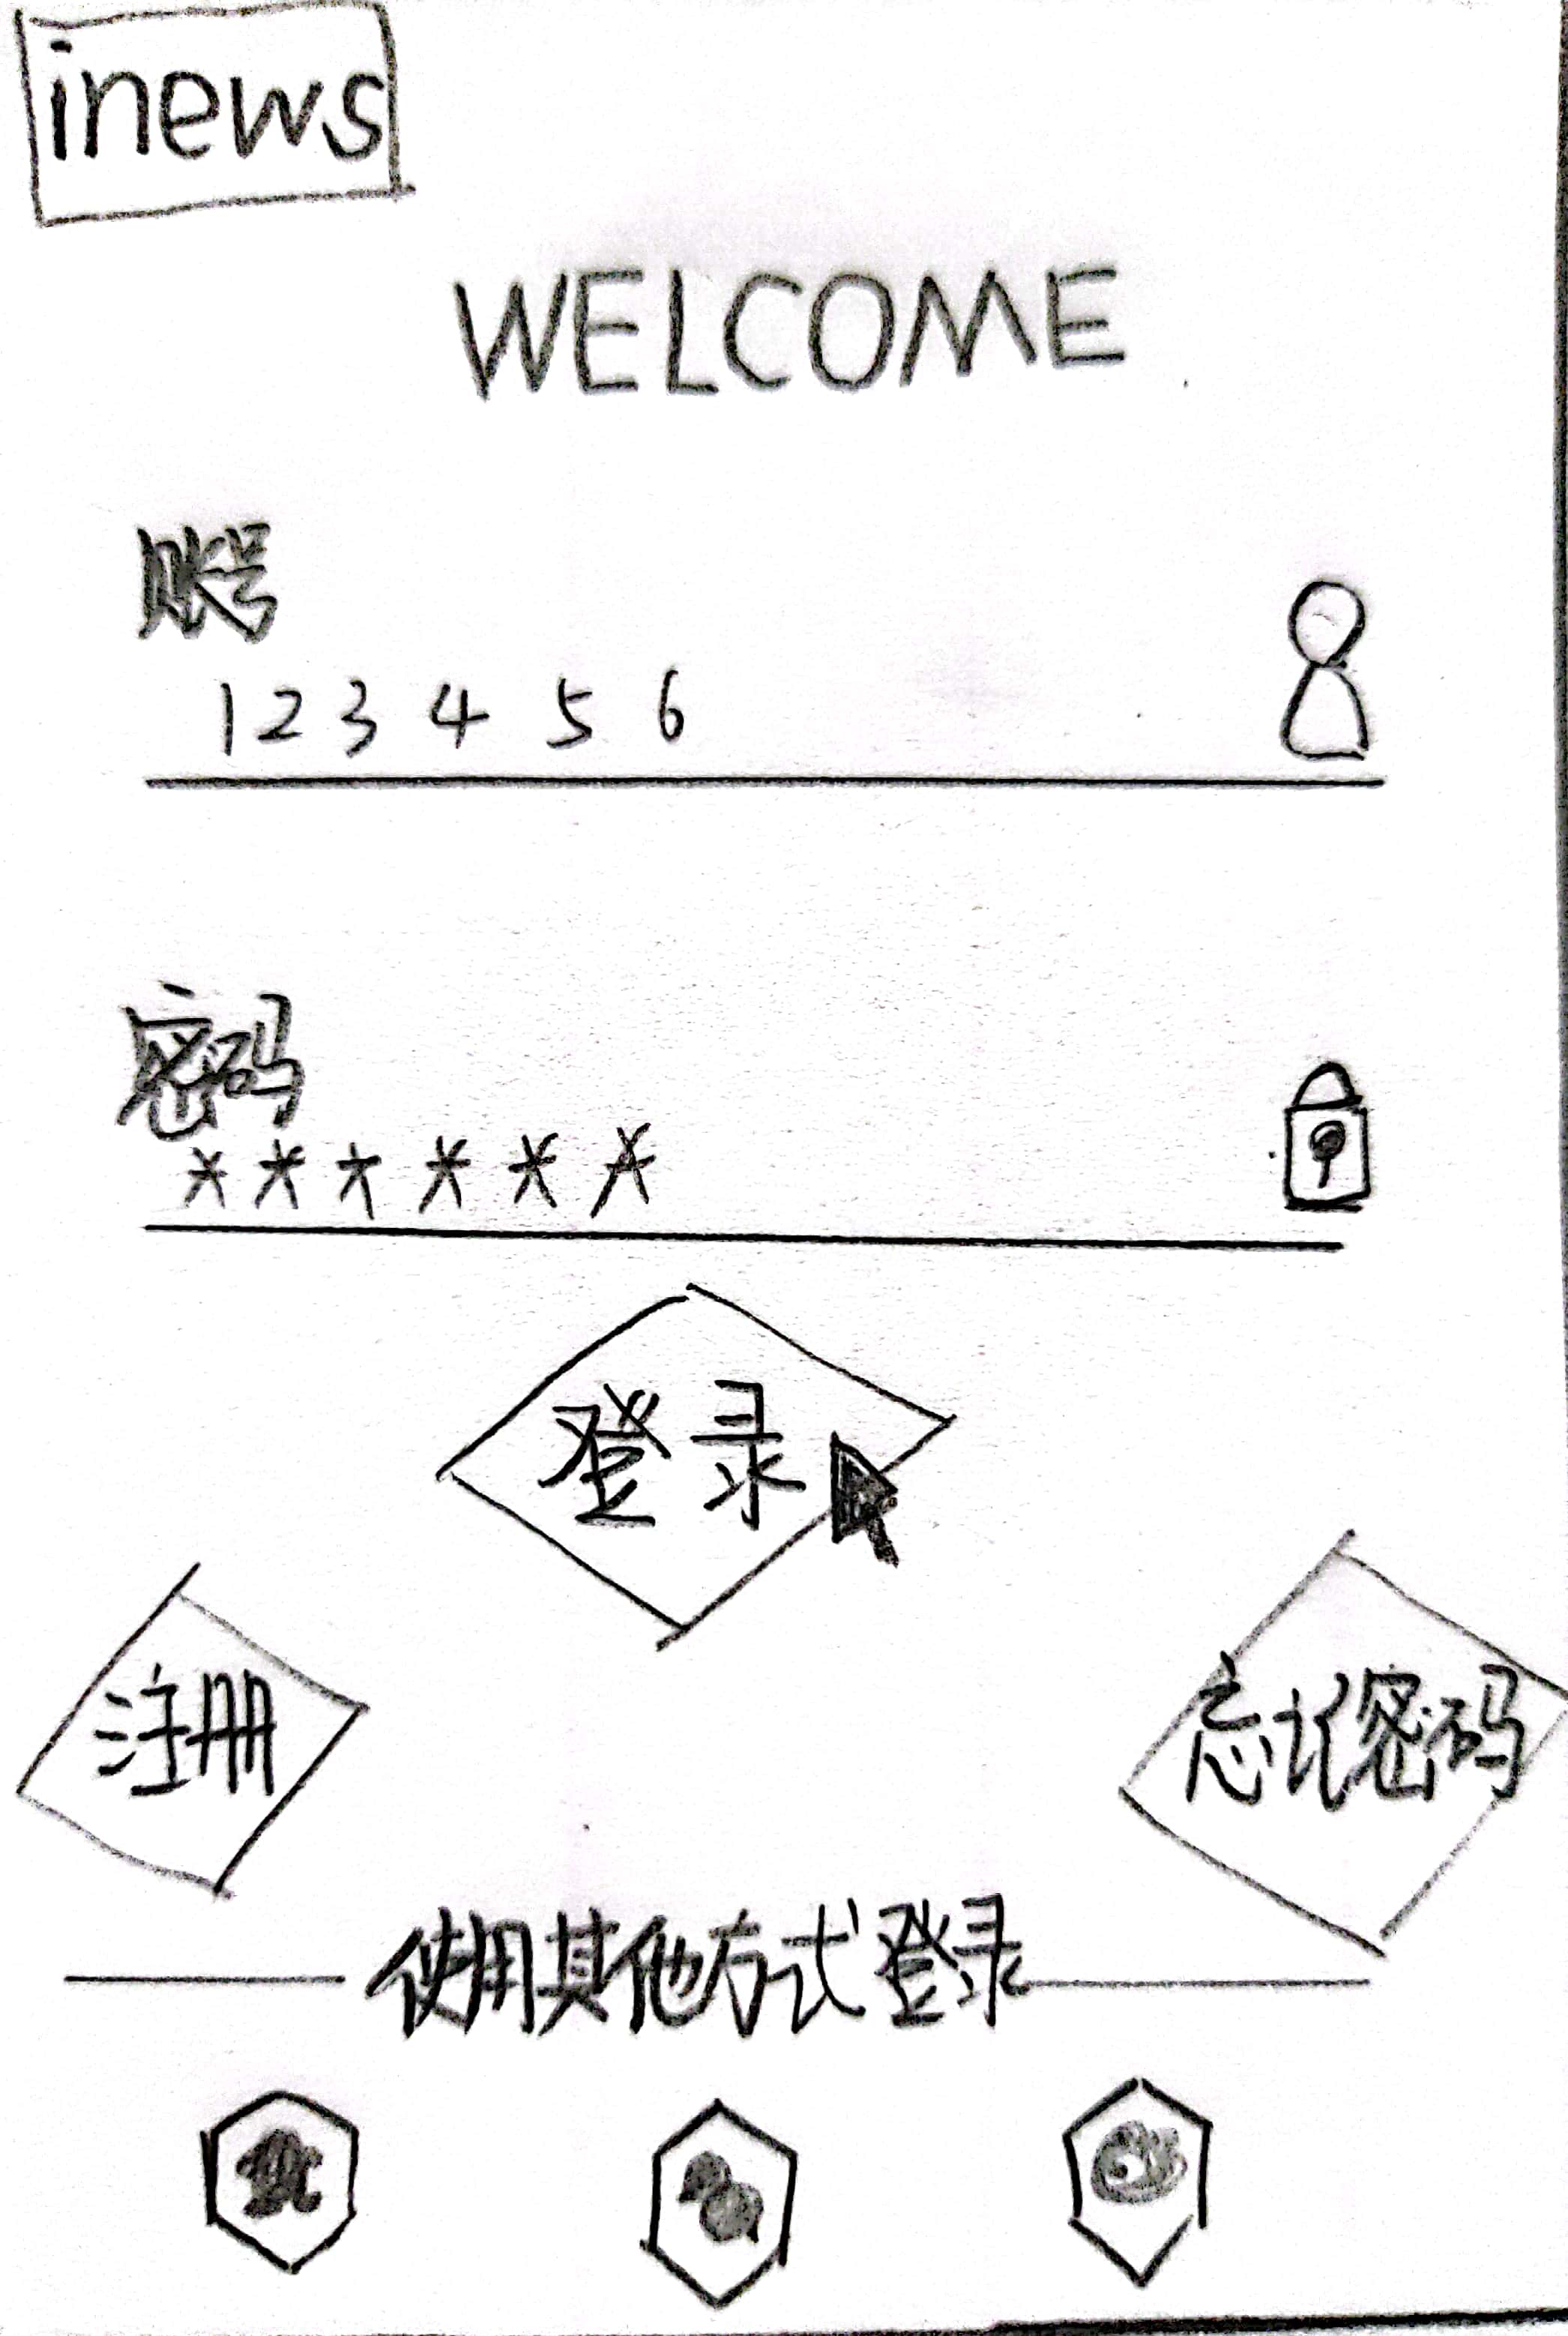 inews
WELCOME
账号
1 2 3 4 5 6
密码
******
登录
注册
忘记密码
使用其他方式登录